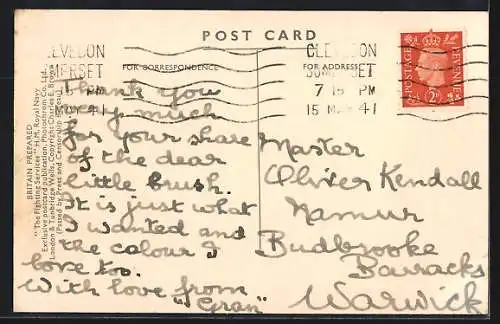 POST CARD
FOR CORRESPONDENCE
FOR ADDRESS
CLEVEDON
SOMERSET
7 15 PM
15 MAY 41
LEVEDON
MERSET
PM
41
POSTAGE
REVENUE
2D
BRITAIN PREPARED.
"The Fighting Services" H.M. Royal Navy
Exclusive postcard publication. Photochrom Co. Ltd.,
London & Tunbridge Wells. Copyright Charles E. Brown
(Passed by Press and Censorship Bureau)
Thank you
very much
for your share
of the dear
little brush.
It is just what
I wanted and
the colour I
love too.
With love from
"Gran"
Master
Oliver Kendall
Namur
Budbrooke
Barracks
Warwick